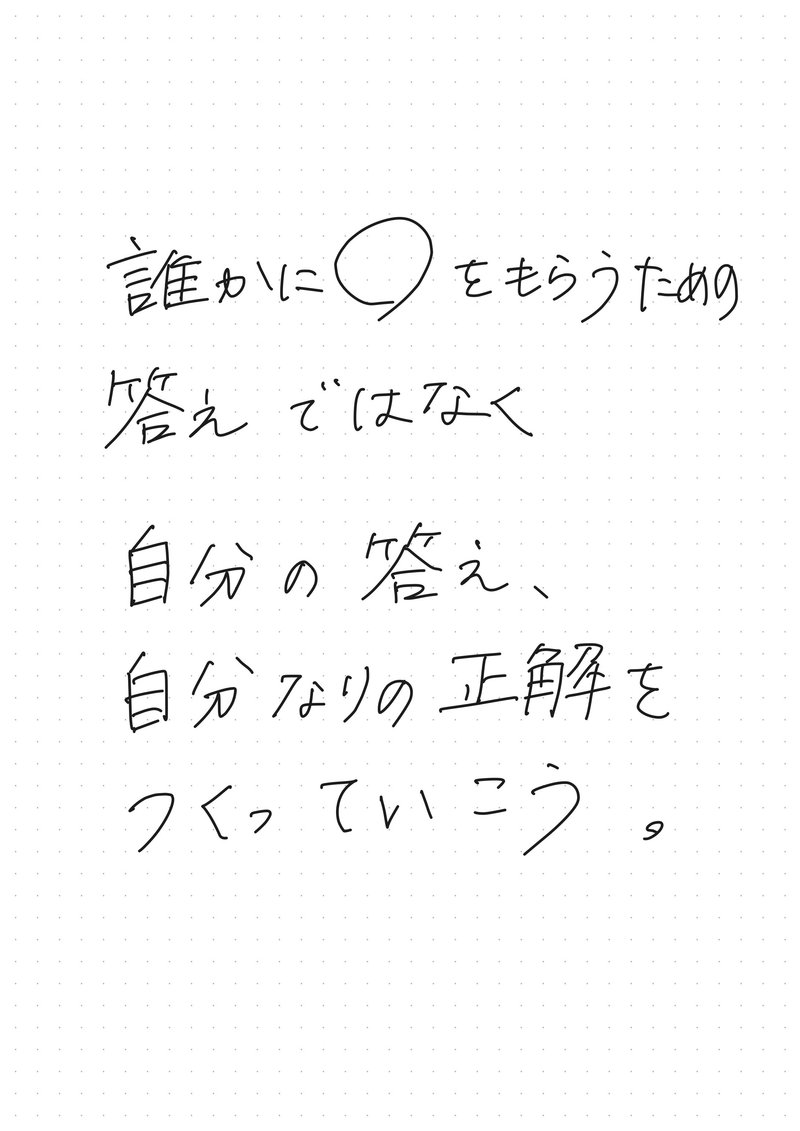 誰かに◯をもらうための
答えではなく
自分の答え、
自分なりの正解を
つくっていこう。